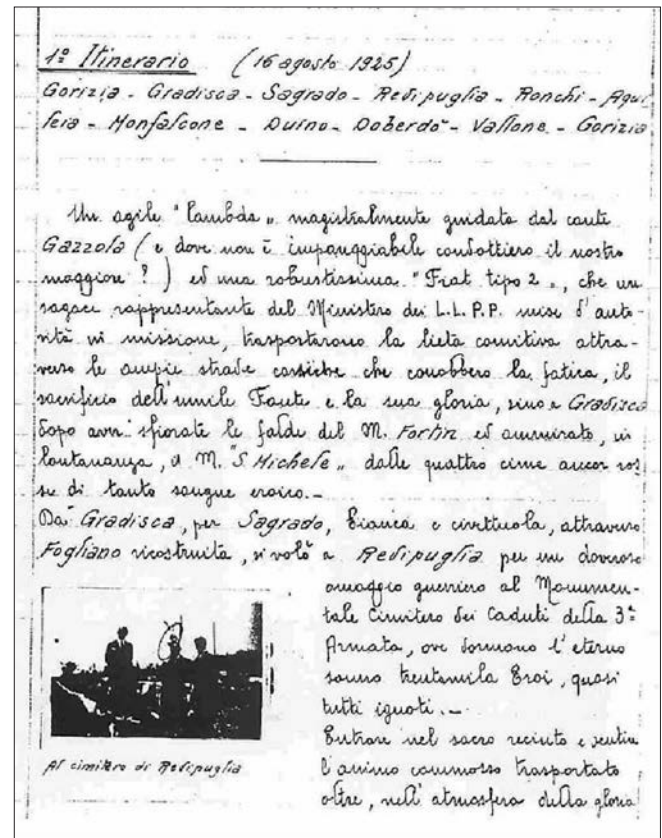 1º Itinerario (16 agosto 1925)
Gorizia - Gradisca - Sagrado - Redipuglia - Ronchi - Aqui
leia - Monfalcone - Duino - Doberdò - Vallone - Gorizia
Un agile "Lambda„ magistralmente guidata dal conte
Gazzola (e dove non è impareggiabile condottiero il nostro
maggiore ?) ed una robustissima "Fiat tipo 2„, che un
sagace rappresentante del Ministero dei L.L. P.P. mise d'auto-
rità in missione, trasportarono la lieta comitiva attra-
verso le ampie strade carsiche che conobbero la fatica, il
sacrificio dell'umile Fante e la sua gloria, sino a Gradisca
dopo aver sfiorate le falde del M. Fortin ed ammirato, in
lontananza, il M. "S. Michele„ dalle quattro cime ancor ros
se di tanto sangue eroico.-
Da Gradisca, per Sagrado, bianca e civettuola, attraverso
Fogliano ricostruita, si volò a Redipuglia per un doveroso
omaggio guerriero al Monumen-
tale Cimitero dei Caduti della 3ª
Armata, ove dormono l'eterno
sonno trentamila Eroi, quasi
tutti ignoti.-
Entrare nel sacro recinto e sentire
l'animo commosso trasportato
oltre, nell'atmosfera della gloria
Al cimitero di Redipuglia